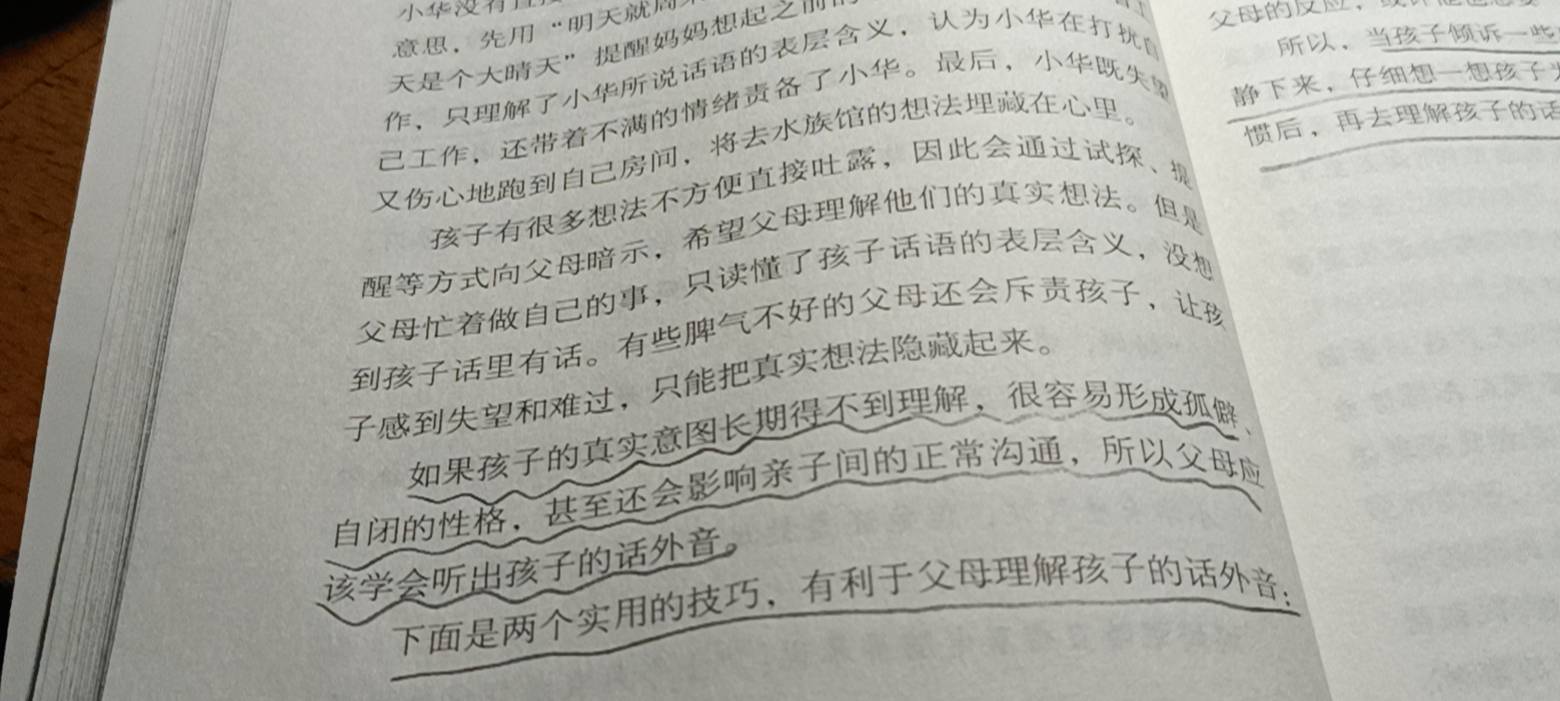 小华没有直接
意思，先用“明天就周末
天是个大晴天”提醒妈妈想起之前的
作，只理解了小华所说话语的表层含义，认为小华在打扰自
己工作，还带着不满的情绪责备了小华。最后，小华既失望
又伤心地跑到自己房间，将去水族馆的想法埋藏在心里。
孩子有很多想法不方便直接吐露，因此会通过试探、提
醒等方式向父母暗示，希望父母理解他们的真实想法。但是
父母忙着做自己的事，只读懂了孩子话语的表层含义，没想
到孩子话里有话。有些脾气不好的父母还会斥责孩子，让孩
子感到失望和难过，只能把真实想法隐藏起来。
如果孩子的真实意图长期得不到理解，很容易形成孤僻、
自闭的性格，甚至还会影响亲子间的正常沟通，所以父母应
该学会听出孩子的话外音。
下面是两个实用的技巧，有利于父母理解孩子的话外音：
父母的反应，或许能
所以，当孩子倾诉一些
静下来，仔细想一想孩子
惯后，再去理解孩子的话